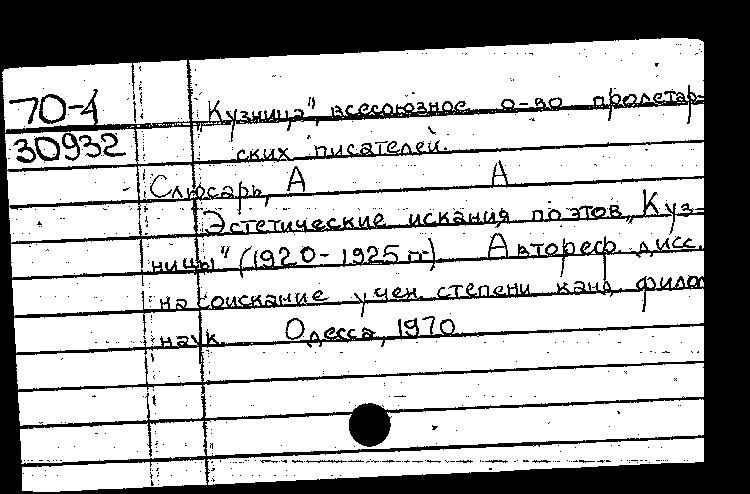 70-4
30932
„Кузница", всесоюзное о-во пролетар-
ских писателей.
Слюсарь, А А
Эстетические искания поэтов „Куз-
ницы" (1920-1925 гг). Автореф. дисс.
на соискание учен. степени канд. филол
наук. Одесса, 1970